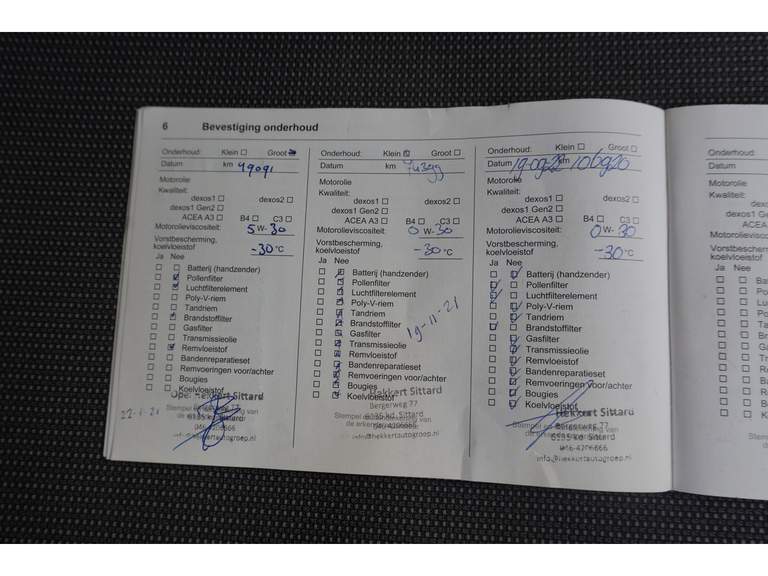 6 Bevestiging onderhoud
Onderhoud: Klein Groot
Datum km 49091
Motorolie
Kwaliteit:
dexos1 dexos2
dexos1 Gen2
ACEA A3 B4 C3
Motorolieviscositeit: 5 W- 30
Vorstbescherming,
koelvloeistof -30 °C
Ja Nee
Batterij (handzender)
Pollenfilter
Luchtfilterelement
Poly-V-riem
Tandriem
Brandstoffilter
Gasfilter
Transmissieolie
Remvloeistof
Bandenreparatieset
Remvoeringen voor/achter
Bougies
Koelvloeistof
Opel Hekkert Sittard
22-1-21
046-4206666
info@hekkertautogroep.nl
Onderhoud: Klein Groot
Datum km 74399
Motorolie
Kwaliteit:
dexos1 dexos2
dexos1 Gen2
ACEA A3 B4 C3
Motorolieviscositeit: 0 W- 30
Vorstbescherming,
koelvloeistof -30 °C
Ja Nee
Batterij (handzender)
Pollenfilter
Luchtfilterelement
Poly-V-riem
Tandriem
Brandstoffilter
Gasfilter
Transmissieolie
Remvloeistof
Bandenreparatieset
Remvoeringen voor/achter
Bougies
Koelvloeistof
19-11-21
Hekkert Sittard
Bergerweg 77
6135 kd Sittard
046-4206666
info@hekkertautogroep.nl
Onderhoud: Klein Groot
Datum 19 09 22 km 106920
Motorolie
Kwaliteit:
dexos1 dexos2
dexos1 Gen2
ACEA A3 B4 C3
Motorolieviscositeit: 0 W- 30
Vorstbescherming,
koelvloeistof -30 °C
Ja Nee
Batterij (handzender)
Pollenfilter
Luchtfilterelement
Poly-V-riem
Tandriem
Brandstoffilter
Gasfilter
Transmissieolie
Remvloeistof
Bandenreparatieset
Remvoeringen voor/achter
Bougies
Koelvloeistof
Hekkert Sittard
Bergerweg 77
6135 kd Sittard
046-4206666
info@hekkertautogroep.nl
Onderhoud:
Datum
Motorolie
Kwaliteit:
dexos1
dexos1 G
ACEA
Motorolievisc
Vorstbescherm
koelvloeistof
Ja Nee
Ba
Po
Lu
Po
Ta
Br
Ga
Tra
Re
Ba
Re
Bo
Ko
Stem
de